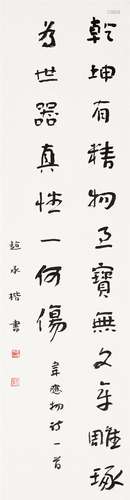 乾坤有精物至寶無文章雕琢
為世器真性一何傷
韋應物詩一首
趙承楷書